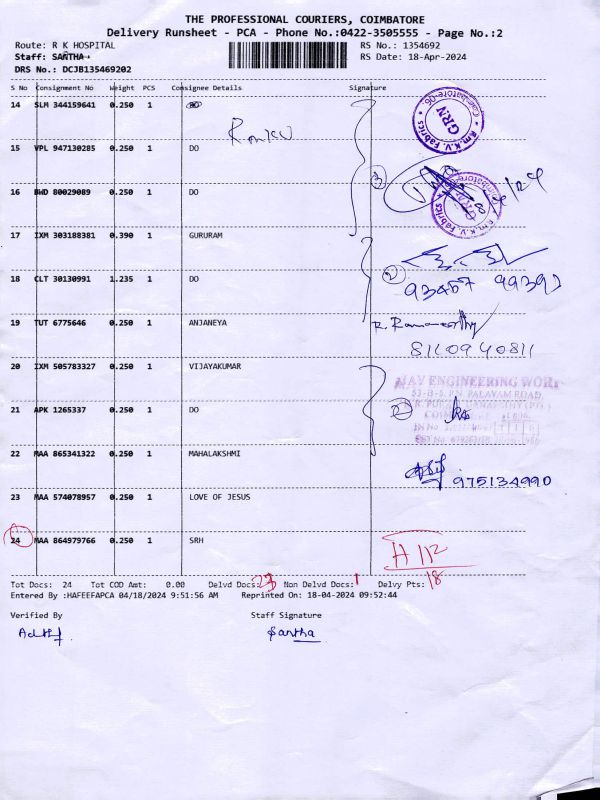 THE PROFESSIONAL COURIERS, COIMBATORE
Delivery Runsheet - PCA - Phone No.:0422-3505555 - Page No.:2
Route: R K HOSPITAL RS No.: 1354692
Staff: SANTHA RS Date: 18-Apr-2024
DRS No.: DCJB135469202
S No Consignment No Weight PCS Consignee Details Signature
14 SLM 344159641 0.250 1 DO
15 VPL 947130285 0.250 1 DO
16 BWD 80029089 0.250 1 DO
17 IXM 303188381 0.390 1 GURURAM
18 CLT 30130991 1.235 1 DO
19 TUT 6775646 0.250 1 ANJANEYA
8110940811
20 IXM 505783327 0.250 1 VIJAYAKUMAR
21 APK 1265337 0.250 1 DO
22 MAA 865341322 0.250 1 MAHALAKSHMI
975134990
23 MAA 574078957 0.250 1 LOVE OF JESUS
24 MAA 864979766 0.250 1 SRH
Tot Docs: 24 Tot COD Amt: 0.00 Delvd Docs: 23 Non Delvd Docs: 1 Delvy Pts: 18
Entered By :HAFEEFAPCA 04/18/2024 9:51:56 AM Reprinted On: 18-04-2024 09:52:44
Verified By Staff Signature
Santha
R.m.K.V. Fabrics
GRN
Coimbatore-06.